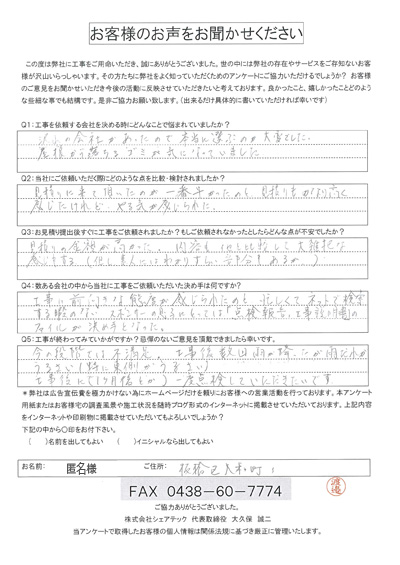 お客様のお声をお聞かせください
この度は弊社に工事をご用命いただき、誠にありがとうございました。世の中には弊社の存在やサービスをご存知ないお客
様が沢山いらっしゃいます。その方たちに弊社をよく知っていただくためのアンケートにご協力いただけるでしょうか? お客様
のご意見をお聞かせいただき今後の活動に反映させていただきたいと考えております。良かったこと、嬉しかったことどのよう
な些細な事でも結構です。是非ご協力お願い致します。(出来るだけ具体的に書いていただければ幸いです)
Q1:工事を依頼する会社を決める時にどんなことで悩まれていましたか?
沢山の会社があったので本当に選ぶのが大変でした。
屋根から落ちるゴミが気になっていました
Q2:当社にご依頼いただく際にどのような点を比較・検討されましたか?
見積りに来て頂いたのが一番早かったのと 見積りもかなり高く
感じたけれど、やる気が感じられた。
Q3:お見積り提出後すぐに工事をご依頼されましたか?もしご依頼されなかったとしたらどんな点が不安でしたか?
見積りの金額が高かった。内容も他と比較して大雑把な
感じもする
Q4:数ある会社の中から当社に工事をご依頼いただいた決め手は何ですか?
工事に前向きな態度が感じられたのと 忙しくてネットで検索
する暇のない
ファイルが決め手となった。
Q5:工事が終わってみていかがですか?忌憚のないご意見を頂戴できましたら幸いです。
今の段階では不満足。工事後数回雨が降ったが雨だれが
うるさい(特に東側がうるさい)
一度点検していただきたいです
*弊社は広告宣伝費を極力かけない為にホームページだけを頼りにお客様への営業活動を行っております。本アンケート
用紙またはお客様宅の調査風景や施工状況を随時ブログ形式のインターネットに掲載させていただいております。上記内容
をインターネットや印刷物に掲載させていただいてもよろしいでしょうか?
下記の中から〇印をお付け下さい。
( )名前を出してもよい ( )イニシャルなら出してもよい
お名前: 匿名様 ご住所: 板橋区大和町
FAX 0438-60-7774
渡邉
ご協力ありがとうございました。
株式会社シェアテック 代表取締役 大久保 誠二
当アンケートで取得したお客様の個人情報は関係法規に基づき厳正に管理いたします。